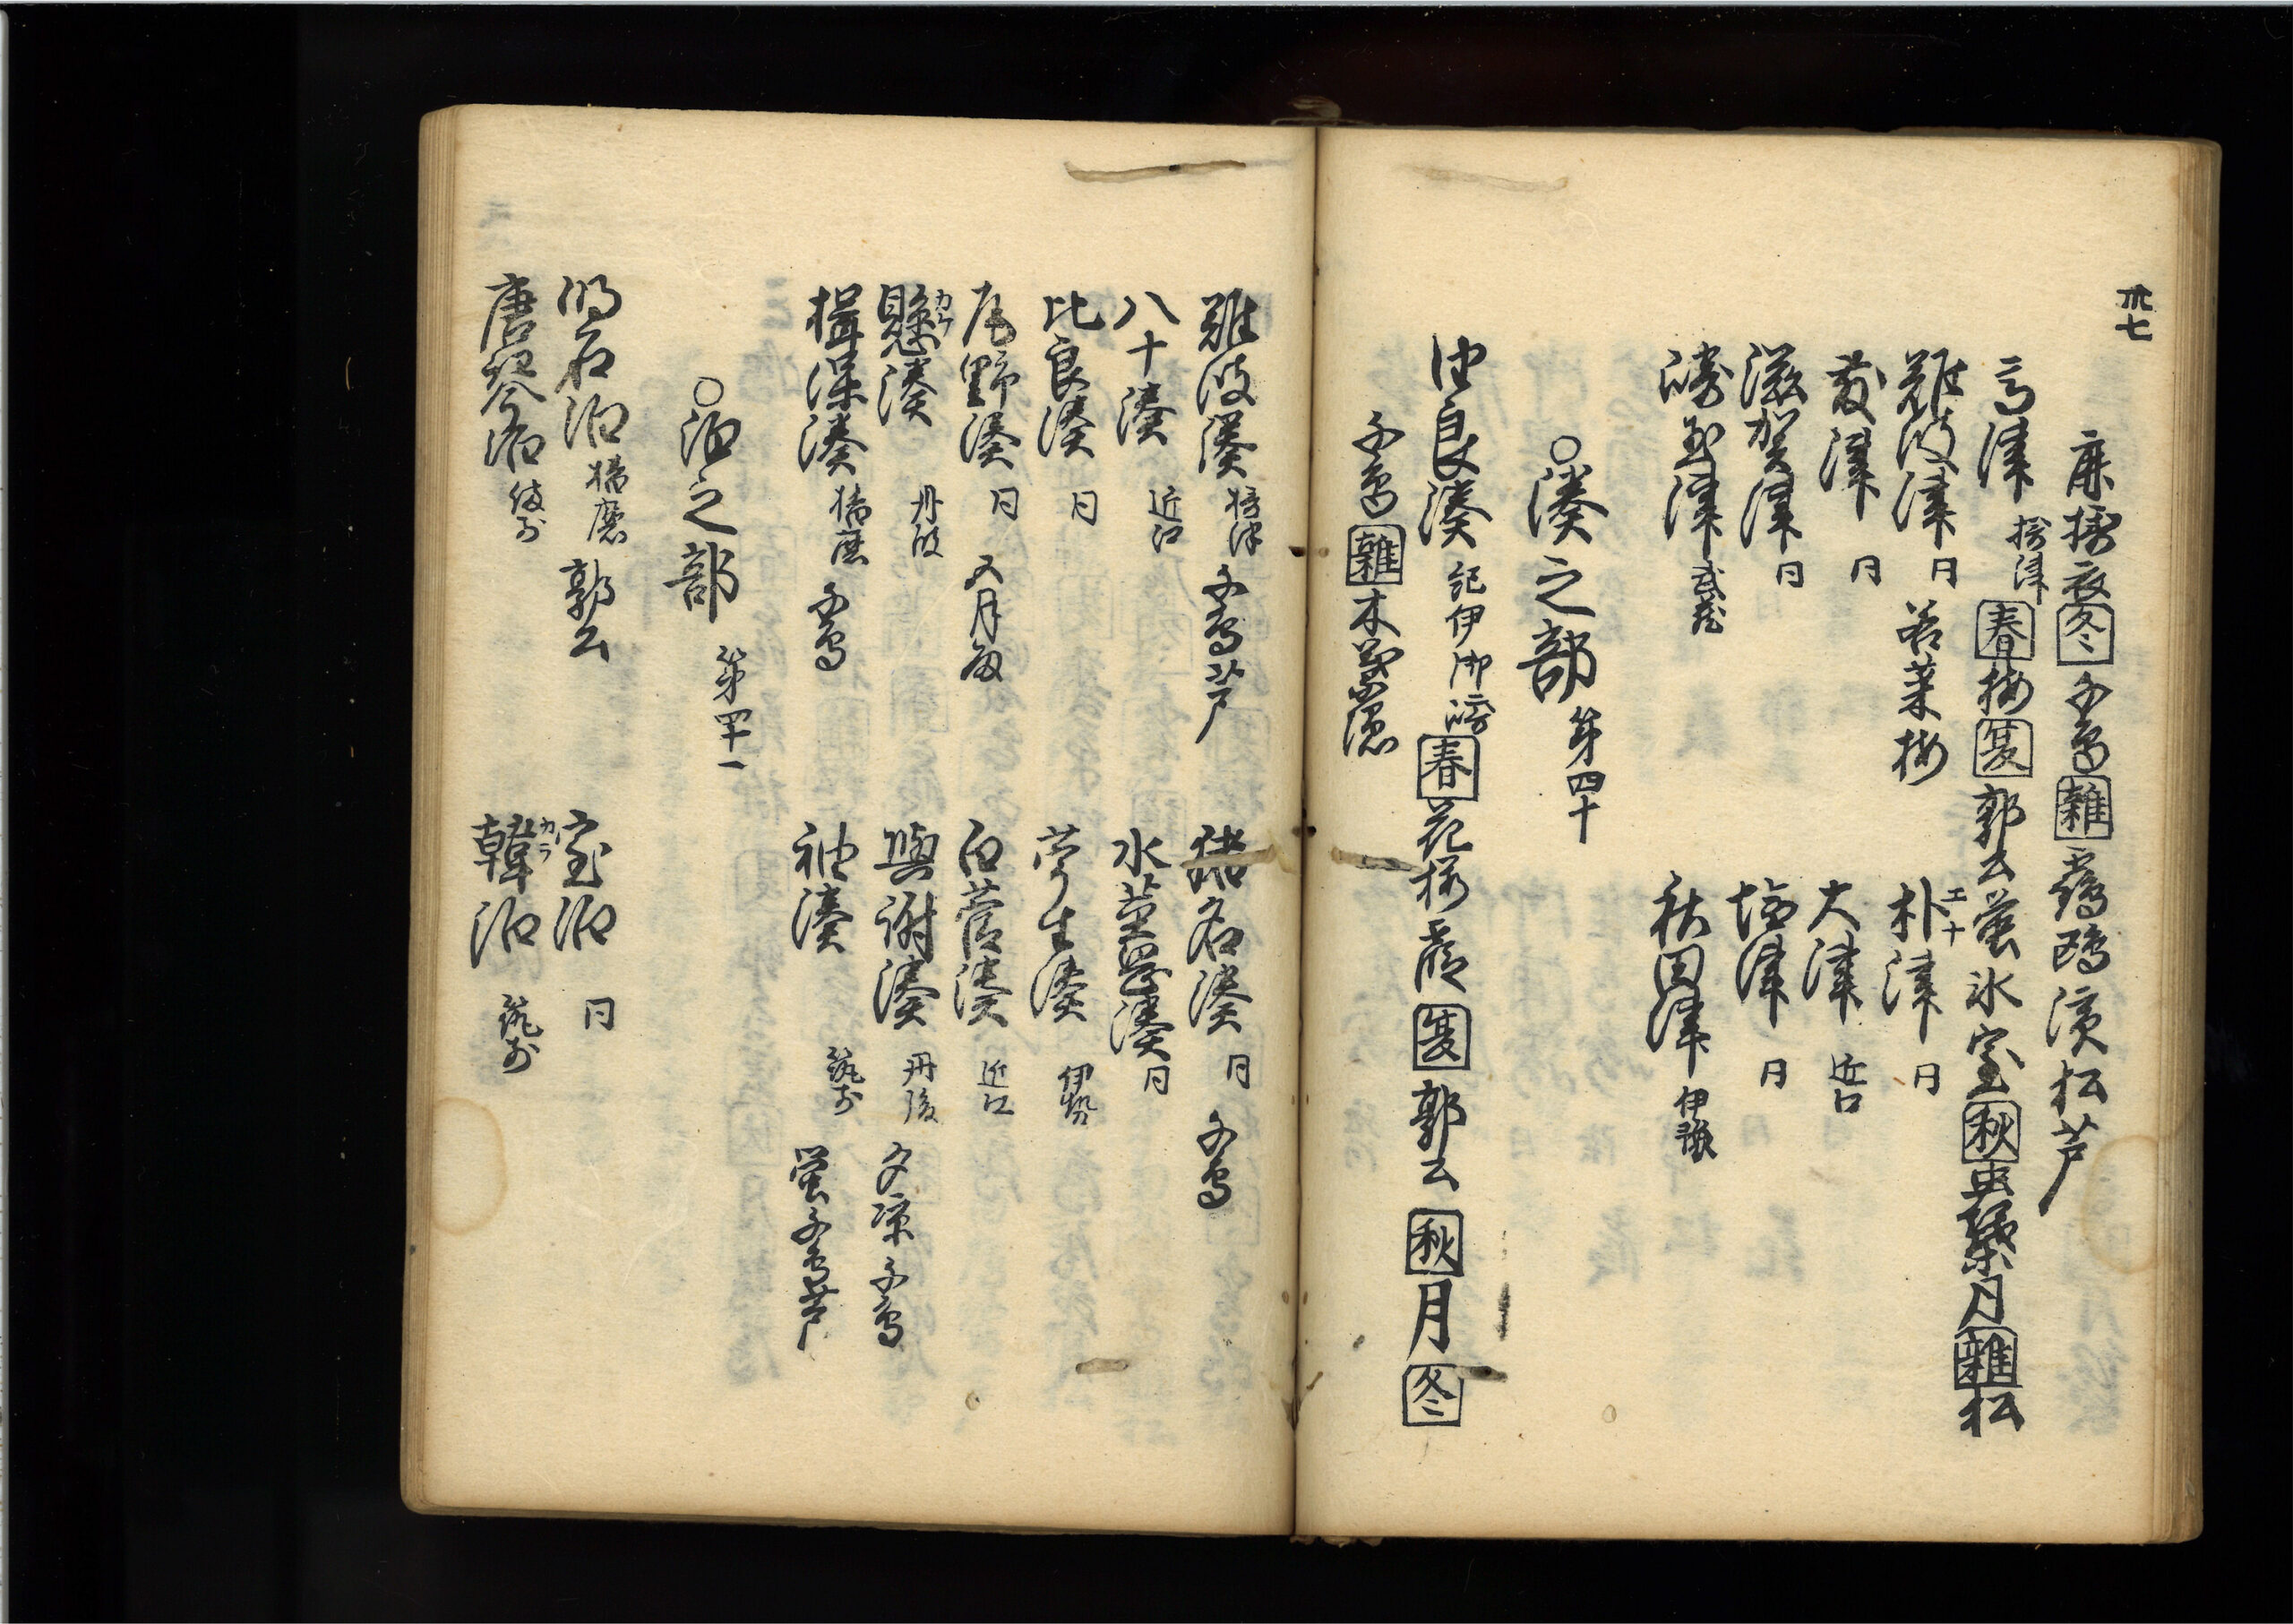 卅七
鹿擣衣冬千鳥雑鶴鴎濱松芦
高津 摂津 春梅夏郭公蛍氷室秋虫槿月雑松
難波津 同 若菜梅
朴津 エナ 同
敷津 同
大津 近江
滋賀津 同
塩津 同
崎玉津 武蔵
秋田津 伊勢
○湊之部 第四十
由良湊 紀伊御崎 春花桜霞夏郭公秋月冬
千鳥雑木葉
難波湊 摂津 千鳥芦
猪名湊 同 千鳥
八十湊 近江
水茎岡湊 同
比良湊 同
湊 伊勢
尾野湊 同 五月雨
白菅湊 近江
懸湊 カケ 丹波
與謝湊 丹後 夕涼千鳥
楫保湊 播磨 千鳥
袖湊 筑前 蛍千鳥芦
○泊之部 第四十一
明石泊 播磨 郭公
室泊 同
唐琴泊 備前
韓泊 カラ 筑前